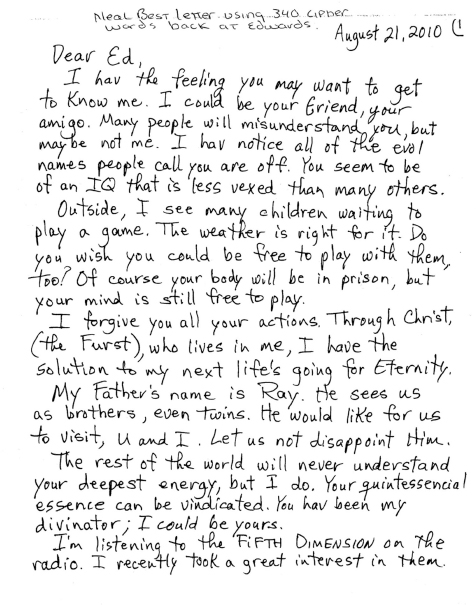 Neal Best letter using 340 cipber
words back at Edwards.
August 21, 2010 (1
Dear Ed,
I hav the feeling you may want to get
to know me. I could be your Griend, your
amigo. Many people will misunderstand you, but
maybe not me. I hav notice all of the evol
names people call you are off. You seem to be
of an IQ that is less vexed than many others.
Outside, I see many children waiting to
play a game. The weather is right for it. Do
you wish you could be free to play with them,
too? Of course your body will be in prison, but
your mind is still free to play.
I forgive you all your actions. Through Christ,
(the Furst), who lives in me, I have the
solution to my next life's going for Eternity.
My Father's name is Ray. He sees us
as brothers, even twins. He would like for us
to visit, U and I. Let us not disappoint Him.
The rest of the world will never understand
your deepest energy, but I do. Your quintessencial
essence can be vindicated. You hav been my
divinator; I could be yours.
I'm listening to the FiFTH DIMENSION on the
radio. I recently took a great interest in them.